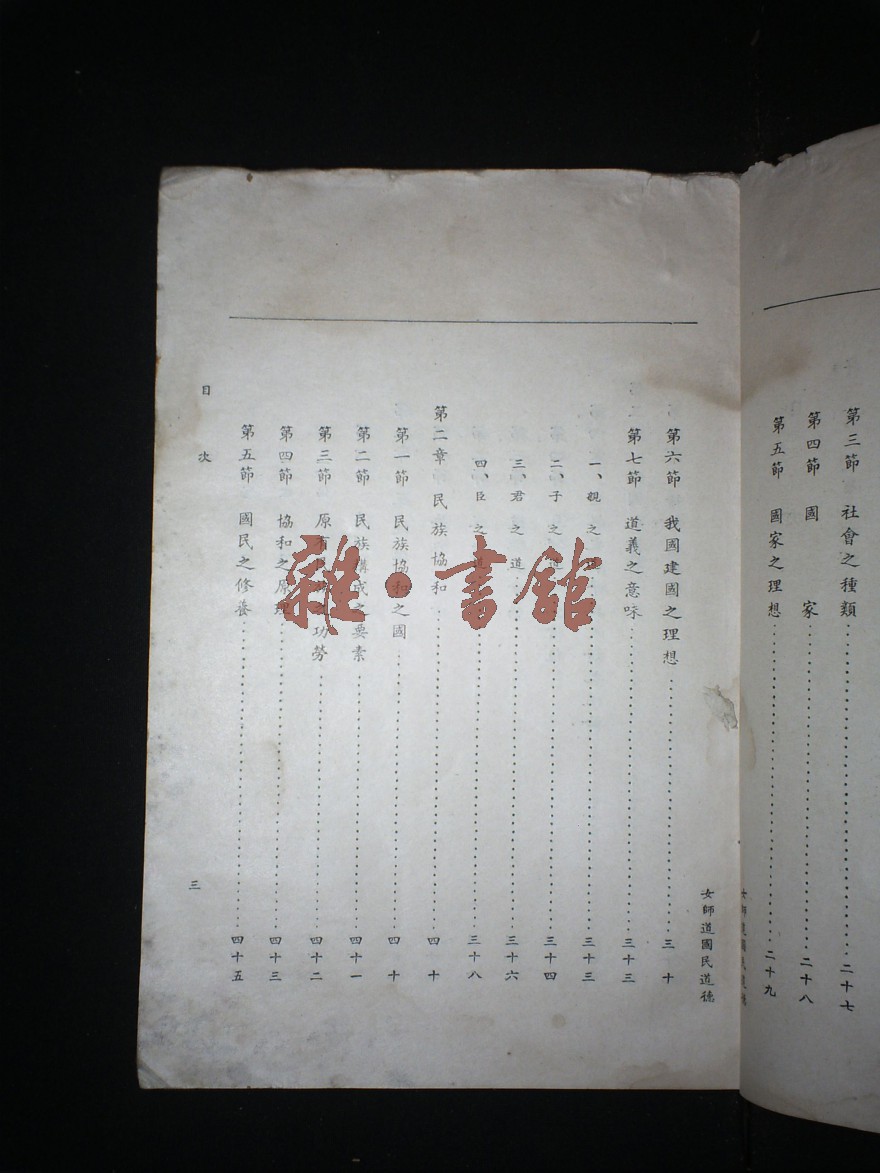 第三節 社會之種類……二十七
第四節 國家……二十八
第五節 國家之理想……二十九
女師道國民道德
第六節 我國建國之理想……三十
第七節 道義之意味……三十三
一、親之……三十三
二、子之道……三十四
三、君之道……三十六
四、臣之道……三十八
第二章 民族協和……四十
第一節 民族協和之國……四十
第二節 民族構成之要素……四十一
第三節 原有……功勞……四十二
第四節 協和之原理……四十三
第五節 國民之修養……四十五
目次
三
雜·書館